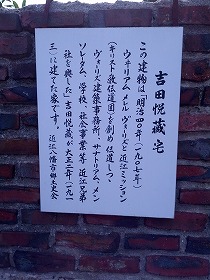 吉田悦蔵宅
この建物は「明治四〇年(一九〇七年)
ウィリアム メレル ヴォーリズと近江ミッション
(キリスト教伝道団)を創め 伝道しつゝ
ヴォーリズ建築事務所、サナトリアム、メン
ソレータム、学校、社会事業等 近江兄弟
社を興した」吉田悦蔵が大正二年(一九一
三)に建てた家です。
近江八幡市郷土史会